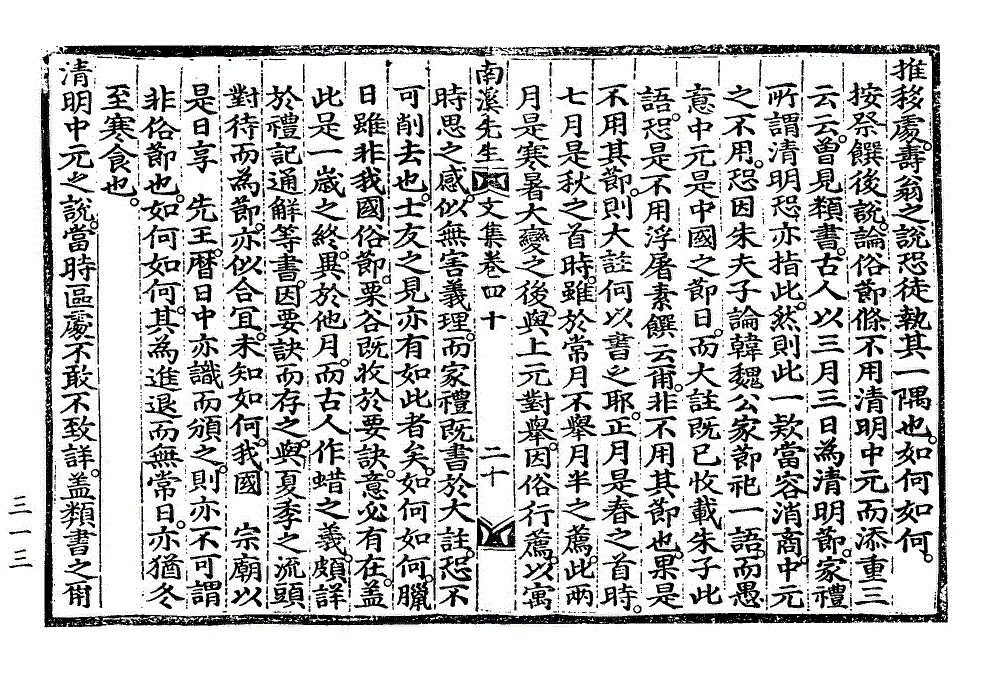 推移處。壽翁之說恐徒執其一隅也。如何如何。
按祭饌後說。論俗節條不用清明中元而添重三
云云。曾見類書。古人以三月三日為清明節。家禮
所謂清明恐亦指此。然則此一欵當容消商。中元
之不用。恐因朱夫子論韓魏公家節祀一語。而愚
意中元是中國之節日。而大註既已收載朱子此
語。恐是不用浮屠素饌云爾。非不用其節也。果是
不用其節。則大註何以書之耶。正月是春之首時。
七月是秋之首時。雖於常月不舉月半之薦。此兩
月是寒暑大變之後。與上元對舉。因俗行薦。以寓
南溪先生文集卷四十 二十
時思之感。似無害義理。而家禮既書於大註。恐不
可削去也。士友之見亦有如此者矣。如何如何。臘
日雖非我國俗節。栗谷既收於要訣。意必有在。蓋
此是一歲之終。異於他月。而古人作蜡之義。頗詳
於禮記通解等書。因要訣而存之。與夏季之流頭
對待而為節。亦似合宜。未知如何。我國 宗廟以
是日享 先王。曆日中亦識而頒之。則亦不可謂
非俗節也。如何如何。其為進退而無常日。亦猶冬
至寒食也。
清明中元之說。當時區處不敢不致詳。蓋類書之爾
三一三